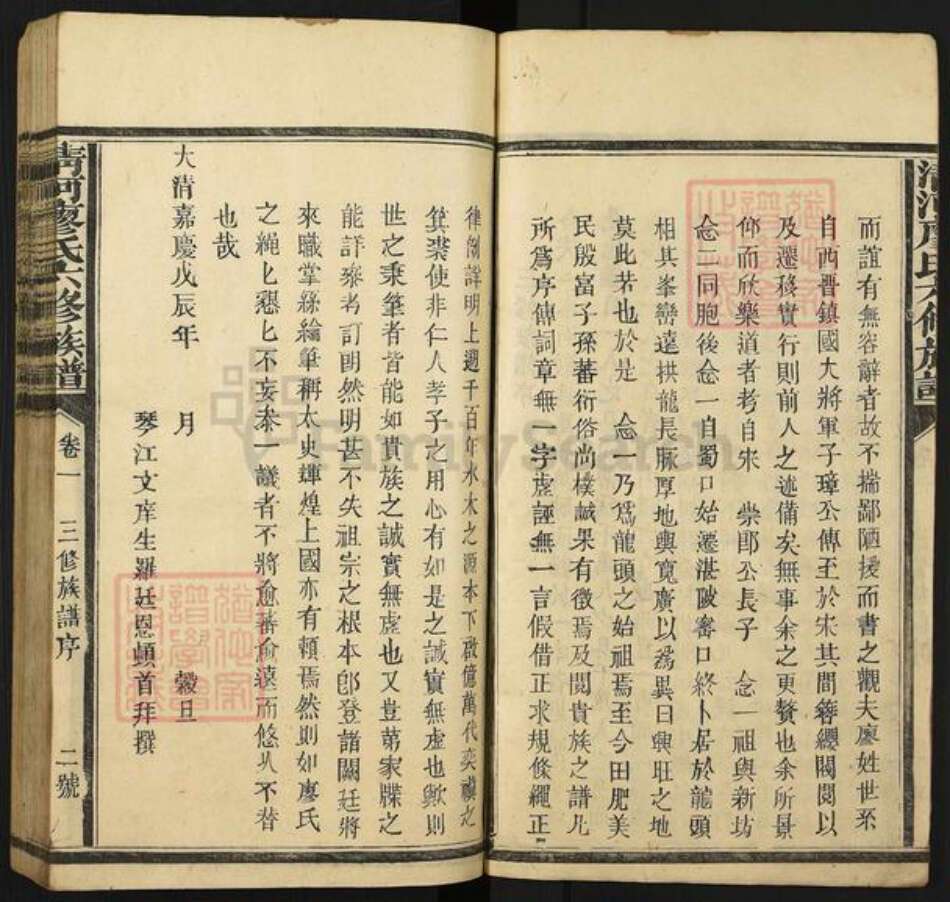 清河廖氏六修族譜
而誼有無容辭者故不揣鄙陋援而書之觀夫廖姓世系
自西晉鎮國大將軍子璋公傳至於宋其間簪纓閥閱以
及遷移實行則前人之述備矣無事余之更贅也余所景
仰而欣樂道者考自宋 崇郎公長子 念一祖與新坊
念二同胞後念一自蜀口始遷湛陂寨口終卜居於龍頭
相其峯巒遠拱龍長脉厚地輿寬廣以爲異日興旺之地
莫此若也於是 念一乃爲龍頭之始祖焉至今田肥美
民殷富子孫蕃衍俗尚樸誠果有徵焉及閱貴族之譜凡
所爲序傳詞章無一字虛誣無一言假借正求規條繩正
律例詳明上邇千百年水木之源本下啟億萬代奕禩之
箕裘使非仁人孝子之用心有如是之誠實無虛也歟則
世之秉筆者皆能如貴族之誠實無虛也又豈第家牒之
能詳叅考訂朗然明甚不失祖宗之根本卽登諸闕廷將
來職掌絲綸筆稱太史輝煌上國亦有賴焉然則如廖氏
之繩匕懇匕不妄叅一議者不將愈蕃愈遠而悠久不替
也哉
大清嘉慶戊辰年 月 穀旦
琴江文庠生羅廷恩頓首拜撰
清河廖氏六修族譜 卷一 三修族譜序 二號
FamilySearch